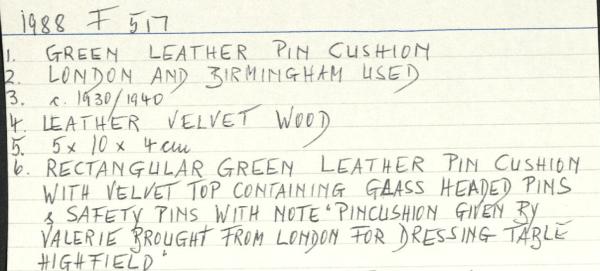 1988 F 517
1. GREEN LEATHER PIN CUSHION
2. LONDON AND BIRMINGHAM USED
3. c. 1930/1940
4. LEATHER VELVET WOOD
5. 5 x 10 x 4 cm
6. RECTANGULAR GREEN LEATHER PIN CUSHION
WITH VELVET TOP CONTAINING GLASS HEADED PINS
& SAFETY PINS WITH NOTE 'PINCUSHION GIVEN BY
VALERIE BROUGHT FROM LONDON FOR DRESSING TABLE
HIGHFIELD'